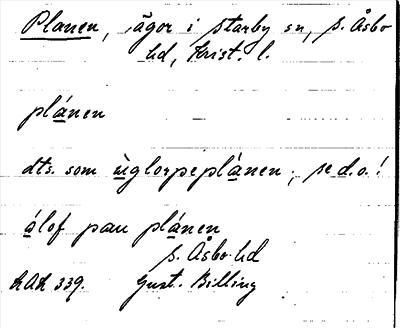 Planen, ägor i Starby sn, S. Åsbo
hd, Krist. l.
plánen
dts. som ùglorpeplánen; se d.o.!
álof pau plánen
S. Åsbo hd
LAL 339. Gust. Billing